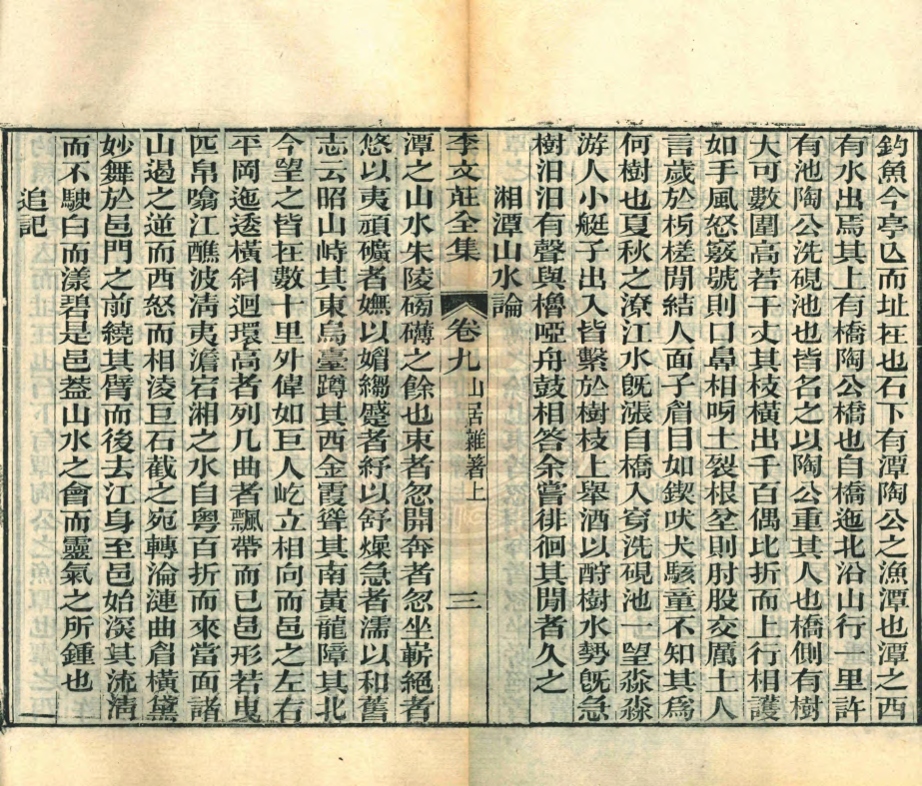 釣魚今亭亾而址在也石下有潭陶公之漁潭也潭之西
有水出焉其上有橋陶公橋也自橋迤北沿山行一里許
有池陶公洗硯池也皆名之以陶公重其人也橋側有樹
大可數圍高若干丈其枝橫出千百偶比折而上行相護
如手風怒竅號則口鼻相呀土裂根坌則肘股交厲土人
言歲於枬槎閒結人面子眉目如鍥吠犬駭童不知其爲
何樹也夏秋之潦江水旣漲自橋入窮洗硯池一望淼淼
游人小艇子出入皆繫於樹枝上舉酒以酹樹水勢旣急
樹汨汨有聲與櫓啞舟鼓相答余嘗徘徊其閒者久之
湘潭山水論
李文莊全集 卷九 山居雜著上 三
潭之山水朱陵磅礴之餘也束者忽開奔者忽坐嶄絕者
悠以夷頑礦者嫵以媚縐蹙者紓以舒燥急者濡以和舊
志云昭山峙其東烏臺蹲其西金霞聳其南黃龍障其北
今望之皆在數十里外偉如巨人屹立相向而邑之左右
平岡迤逶橫斜迴環高者列几曲者飄帶而已邑形若曳
匹帛噏江醮波淸夷澹宕湘之水自粵百折而來當面諸
山遏之逆而西怒而相淩巨石截之宛轉淪漣曲眉橫黛
妙舞於邑門之前繞其臂而後去江身至邑始深其流淸
而不駛白而漾碧是邑蓋山水之會而靈氣之所鍾也
追記